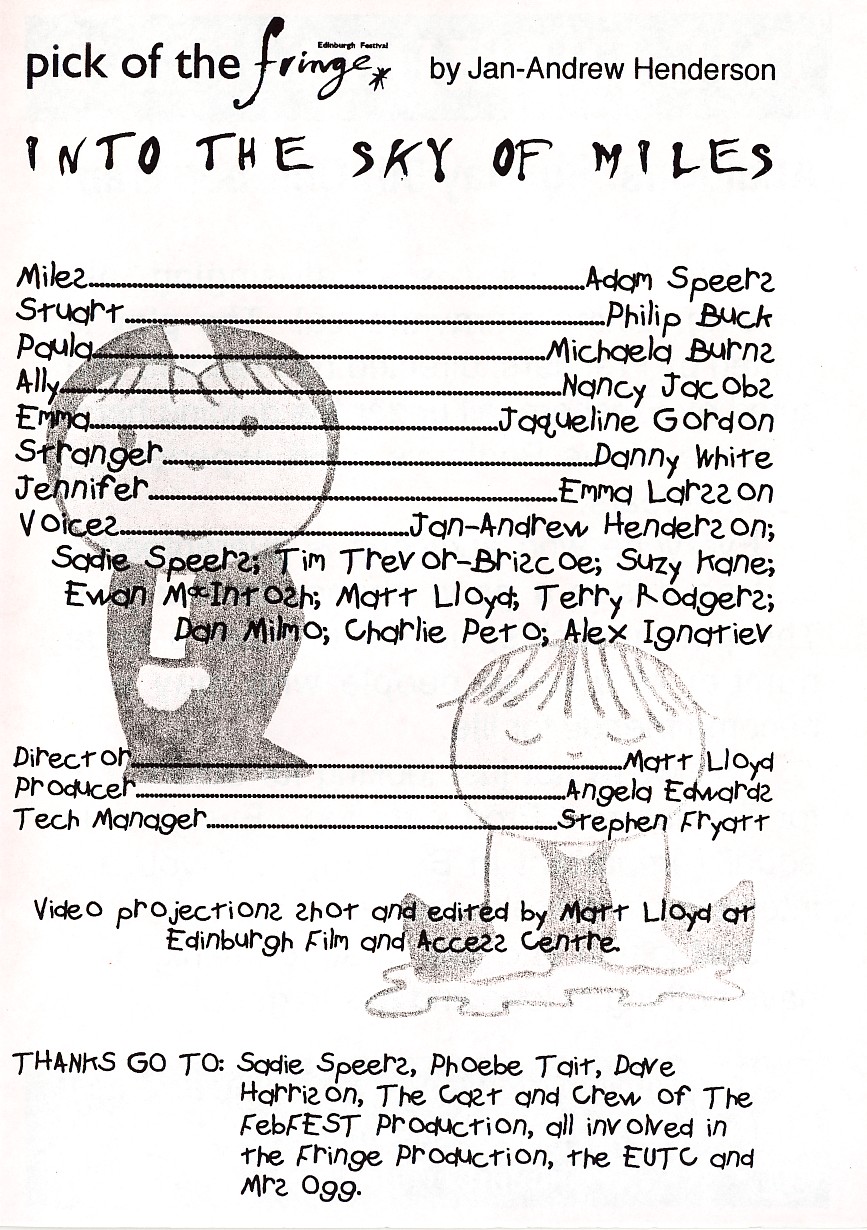 pick of the fringe Edinburgh Festival by Jan-Andrew Henderson
INTO THE SKY OF MILES
Miles........Adam Speers
Stuart........Philip Buck
Paula........Michaela Burns
Ally........Nancy Jacobs
Emma........Jaqueline Gordon
Stranger........Danny White
Jennifer........Emma Larsson
Voices........Jan-Andrew Henderson;
Sadie Speers; Tim Trevor-Briscoe; Suzy Kane;
Ewan MacIntosh; Matt Lloyd; Terry Rodgers;
Dan Milmo; Charlie Peto; Alex Ignatiev
Director........Matt Lloyd
Producer........Angela Edwards
Tech Manager........Stephen Fryatt
Video projections shot and edited by Matt Lloyd at
Edinburgh Film and Access Centre.
THANKS GO TO: Sadie Speers, Phoebe Tait, Dave
Harrison, The Cast and Crew of The
FebFEST Production, all involved in
the Fringe Production, the EUTC and
Mrs Ogg.